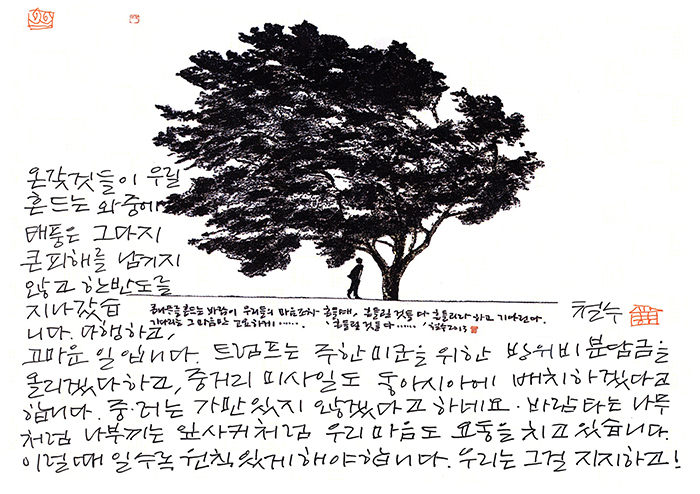 온갖것들이 우릴
흔드는 와중에
태풍은 그다지
큰피해를 남기지
않고 한반도를
지나갔습
니다. 다행하고,
큰나무를 흔드는 바람이 우리들의 마음조차 흔들때, 흔들릴 것들 다 흔들리라 하고 기다린다.
기다리는 그 마음만 고요하게······. 흔들릴 것들 다 ······' 철수2013
철수
고마운 일입니다. 트럼프는 주한미군을 위한 방위비분담금을
올리겠다하고, 중거리 미사일도 동아시아에 배치하겠다고
합니다. 중·러는 가만있지 않겠다고 하네요. 바람타는 나무
처럼 나부끼는 잎사귀처럼 우리마음도 요동을 치고있습니다.
이럴때 일수록 원칙있게해야합니다. 우리는 그걸 지지하고!